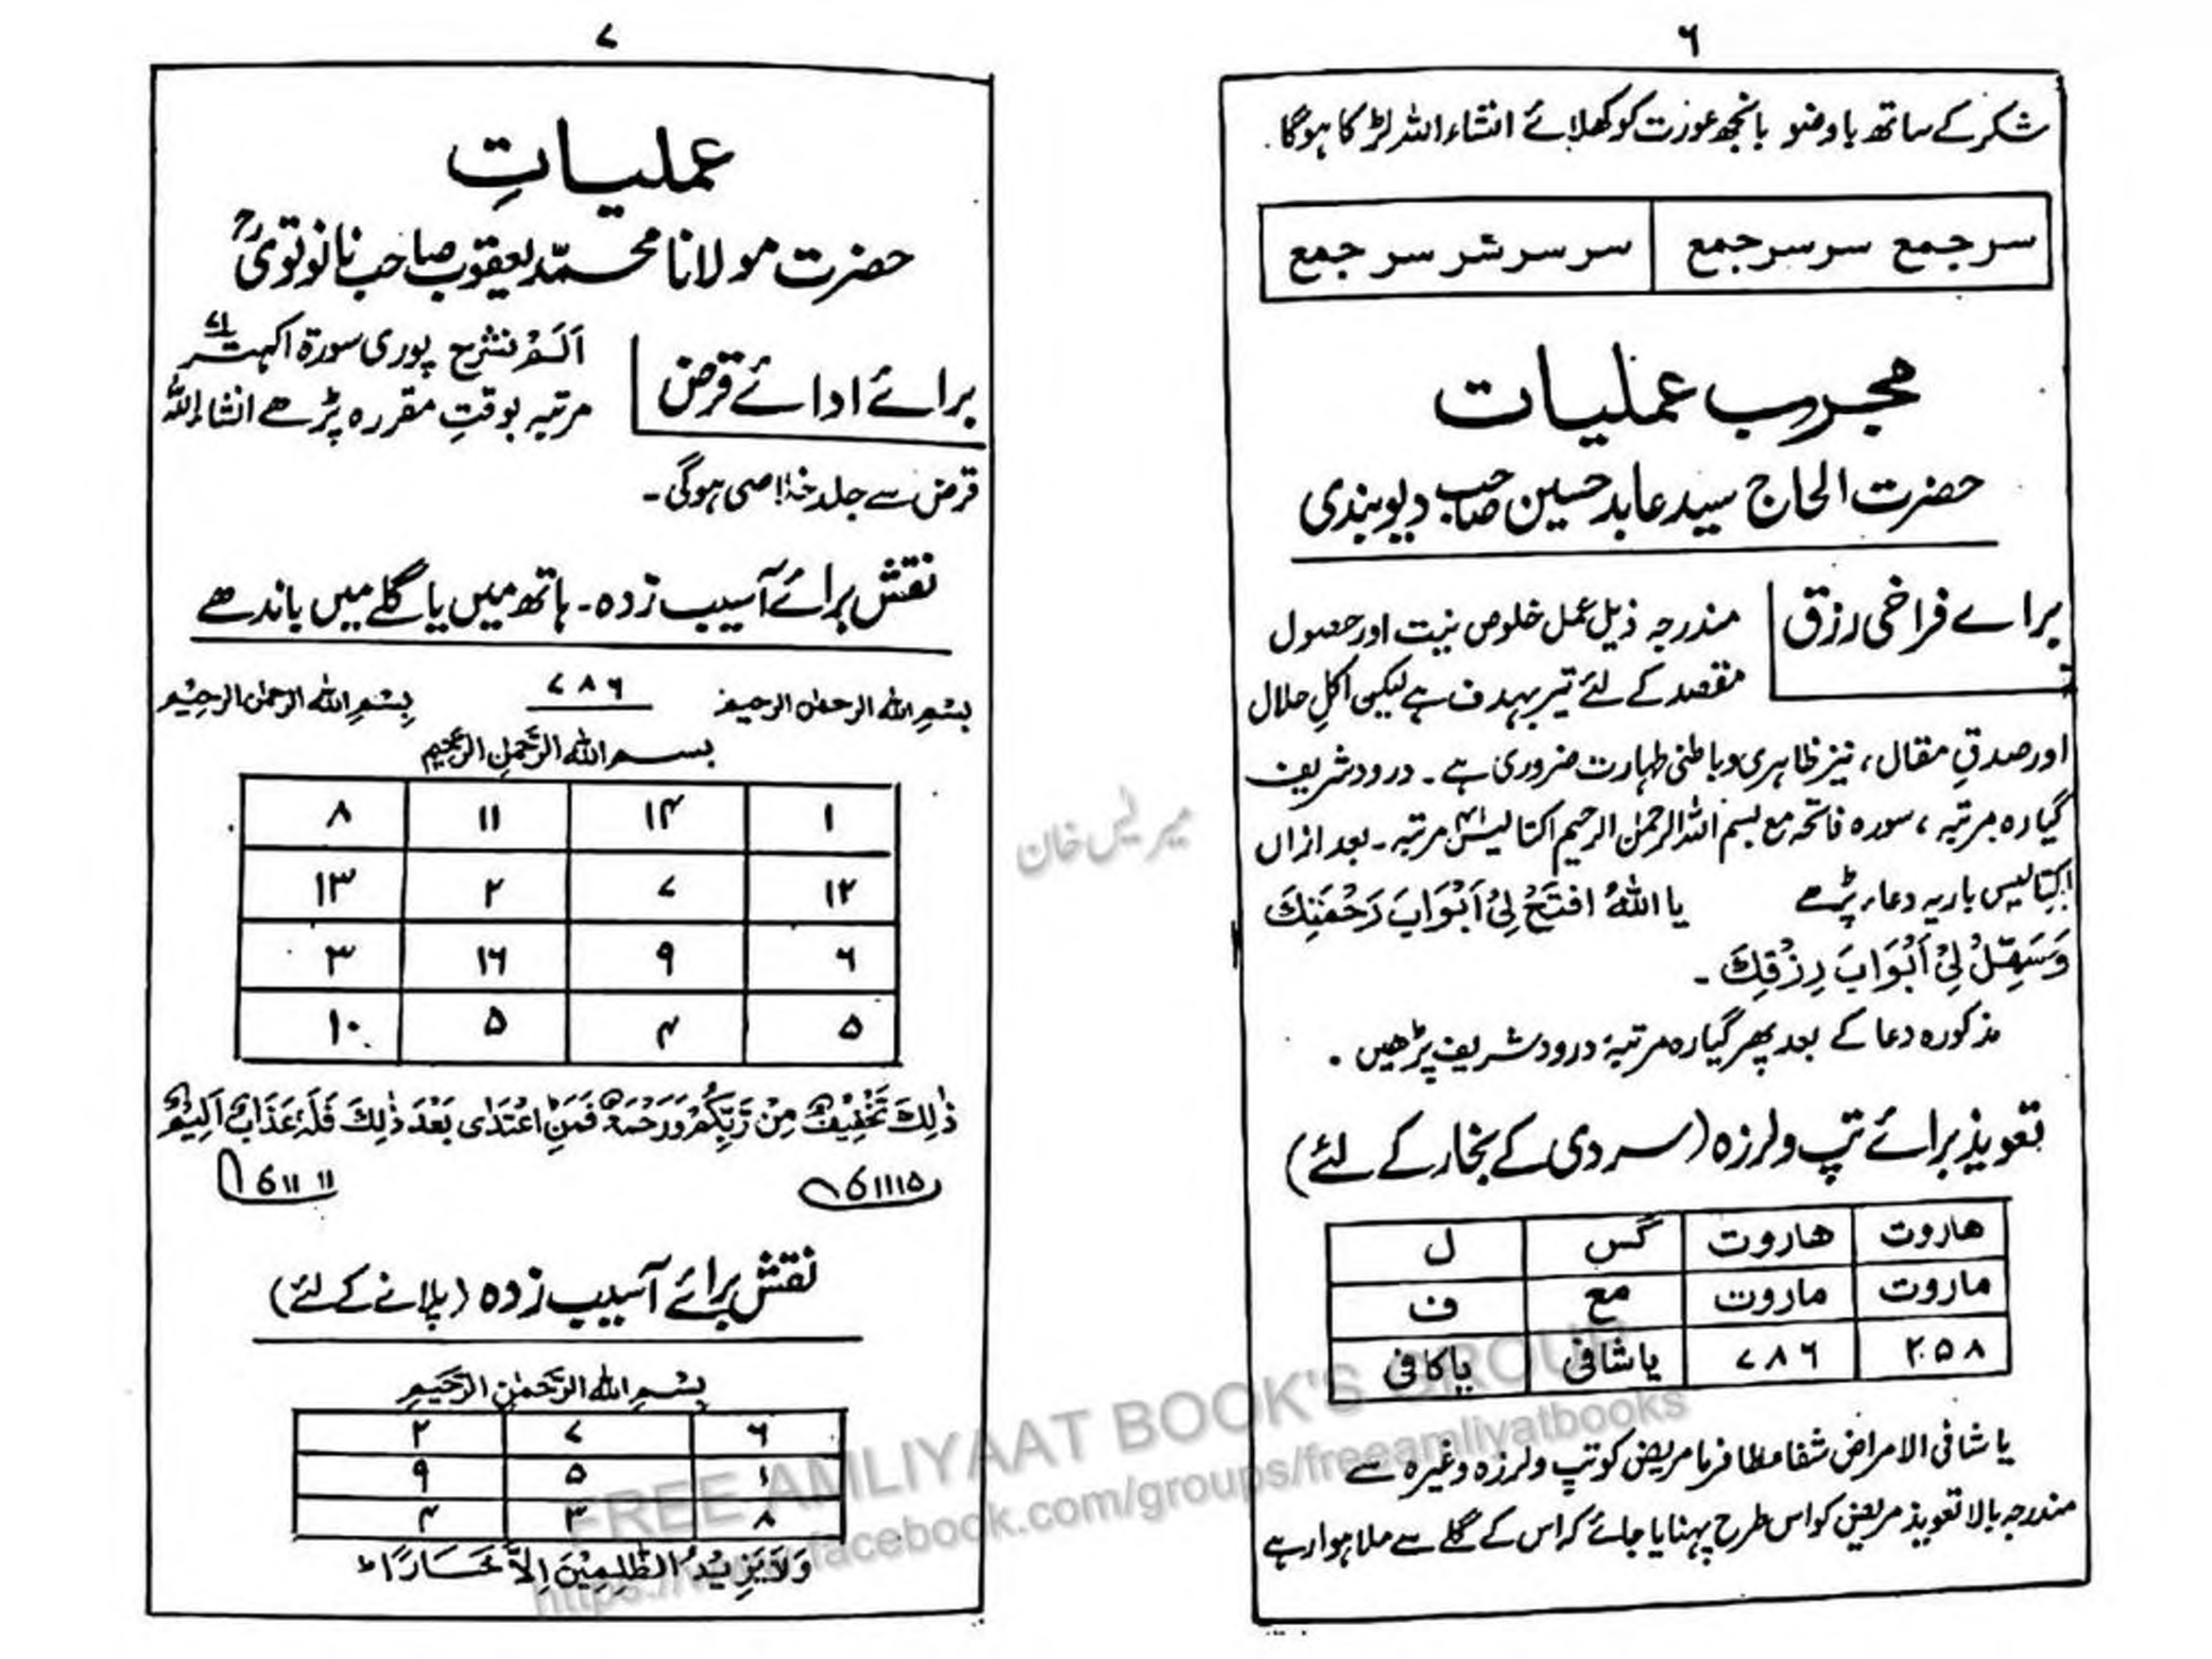 ۶
شکر کے ساتھ باوضو بانجھ عورت کو کھلائے انشاء اللہ لڑکا ہوگا.
سر جمع سر سر جمع سر سر سر سر جمع
مجرب عملیات
حضرت الحاج سید عابد حسین صاحب دیوبندی
برائے فراخی رزق
مندرجہ ذیل عمل خلوص نیت اور حصول
مقصد کے لئے تیر بہدف ہے لیکن اکلِ حلال
اور صدقِ مقال، نیز ظاہری و باطنی طہارت ضروری ہے۔ درود شریف
گیارہ مرتبہ، سورہ فاتحہ مع بسم اللہ الرحمٰن الرحیم اکتالیس ۴۱ مرتبہ۔ بعد ازاں
اکتالیس بار یہ دعاء پڑھے یا اللهُ افْتَحْ لِیْ اَبْوَابَ رَحْمَتِكَ
وَسَهِّلْ لِیْ اَبْوَابَ رِزْقِكَ ۔
مذکورہ دعا کے بعد پھر گیارہ مرتبہ درود شریف پڑھیں.
تعویذ برائے تپ ولرزہ (سردی کے بخار کے لئے)
ھاروت ھاروت گس ل
ماروت ماروت مع ف
۲۰۵۸ ۷۸۶ یا شافی یا کافی
یا شافی الامراض شفا عطا فرما مریض کو تپ ولرزہ وغیرہ سے
مندرجہ بالا تعویذ مریض کو اس طرح پہنایا جائے کہ اس کے گلے سے ملا ہوا رہے
۷
عملیاتِ
حضرت مولانا محمّد یعقوب صاحب نانوتویؒ
برائے ادائے قرض
اَلَمْ نشرح پوری سورۃ اکہتر ۷۱
مرتبہ بوقتِ مقررہ پڑھے انشاء اللہ
قرض سے جلد خلاصی ہوگی۔
نقش برائے آسیب زدہ۔ ہاتھ میں یا گلے میں باندھے
بسْمِ الله الرحمٰن الرحیم ۷۸۶ بِسْمِ الله الرحمٰن الرحِیْم
بسم الله الرَّحمٰنِ الرَّحِیم
۱ ۱۴ ۱۱ ۸
۱۲ ۷ ۲ ۱۳
۶ ۹ ۱۶ ۳
۵ ۴ ۵ ۱۰
ذٰلِكَ تَخْفِیْفٌ مِنْ رَّبِّكُمْ وَرَحْمَةٌ فَمَنِ اعْتَدٰى بَعْدَ ذٰلِكَ فَلَهٗ عَذَابٌ اَلِیْمٌ
نقش برائے آسیب زدہ (پلانے کے لئے)
بِسْمِ اللهِ الرَّحْمٰنِ الرَّحِیْمِ
۶ ۷ ۲
۱ ۵ ۹
۸ ۳ ۴
وَلَا یَزِیْدُ الظّٰلِمِیْنَ اِلَّا خَسَارًا ط
میر لیس خان
FREE AMLIYAAT BOOK'S GROUP
https://www.facebook.com/groups/freeamliyatbooks